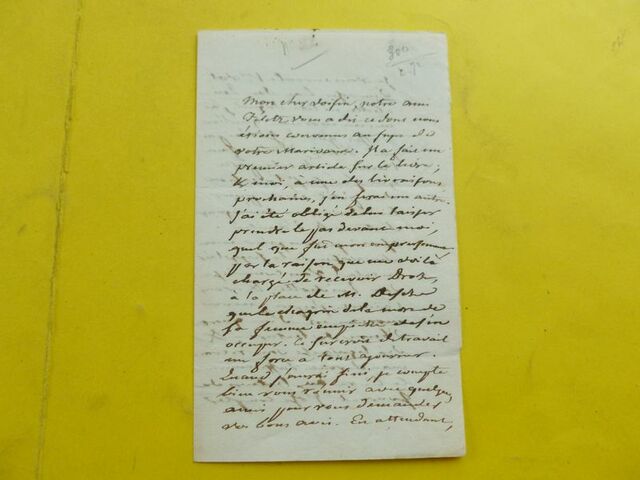 300
Mon cher voisin, notre ami
vous a dit ce dont nous
étions convenus au sujet de
votre Marivaux. Il a fait un
premier article sur le livre;
& moi, à une des livraisons
prochaines, j'en ferai un autre.
J'ai été obligé de lui laisser
prendre le pas devant moi,
quel que fût mon empressement
par la raison que me voilà
chargé de recevoir
à la place de M.
que le chagrin de la mort de
sa femme empêche de s'en
occuper. Ce surcroît de travail
me force à tout ajourner.
Quand j'aurai fini, je compte
bien vous réunir avec quelques
amis pour vous demander
vos bons avis. En attendant,